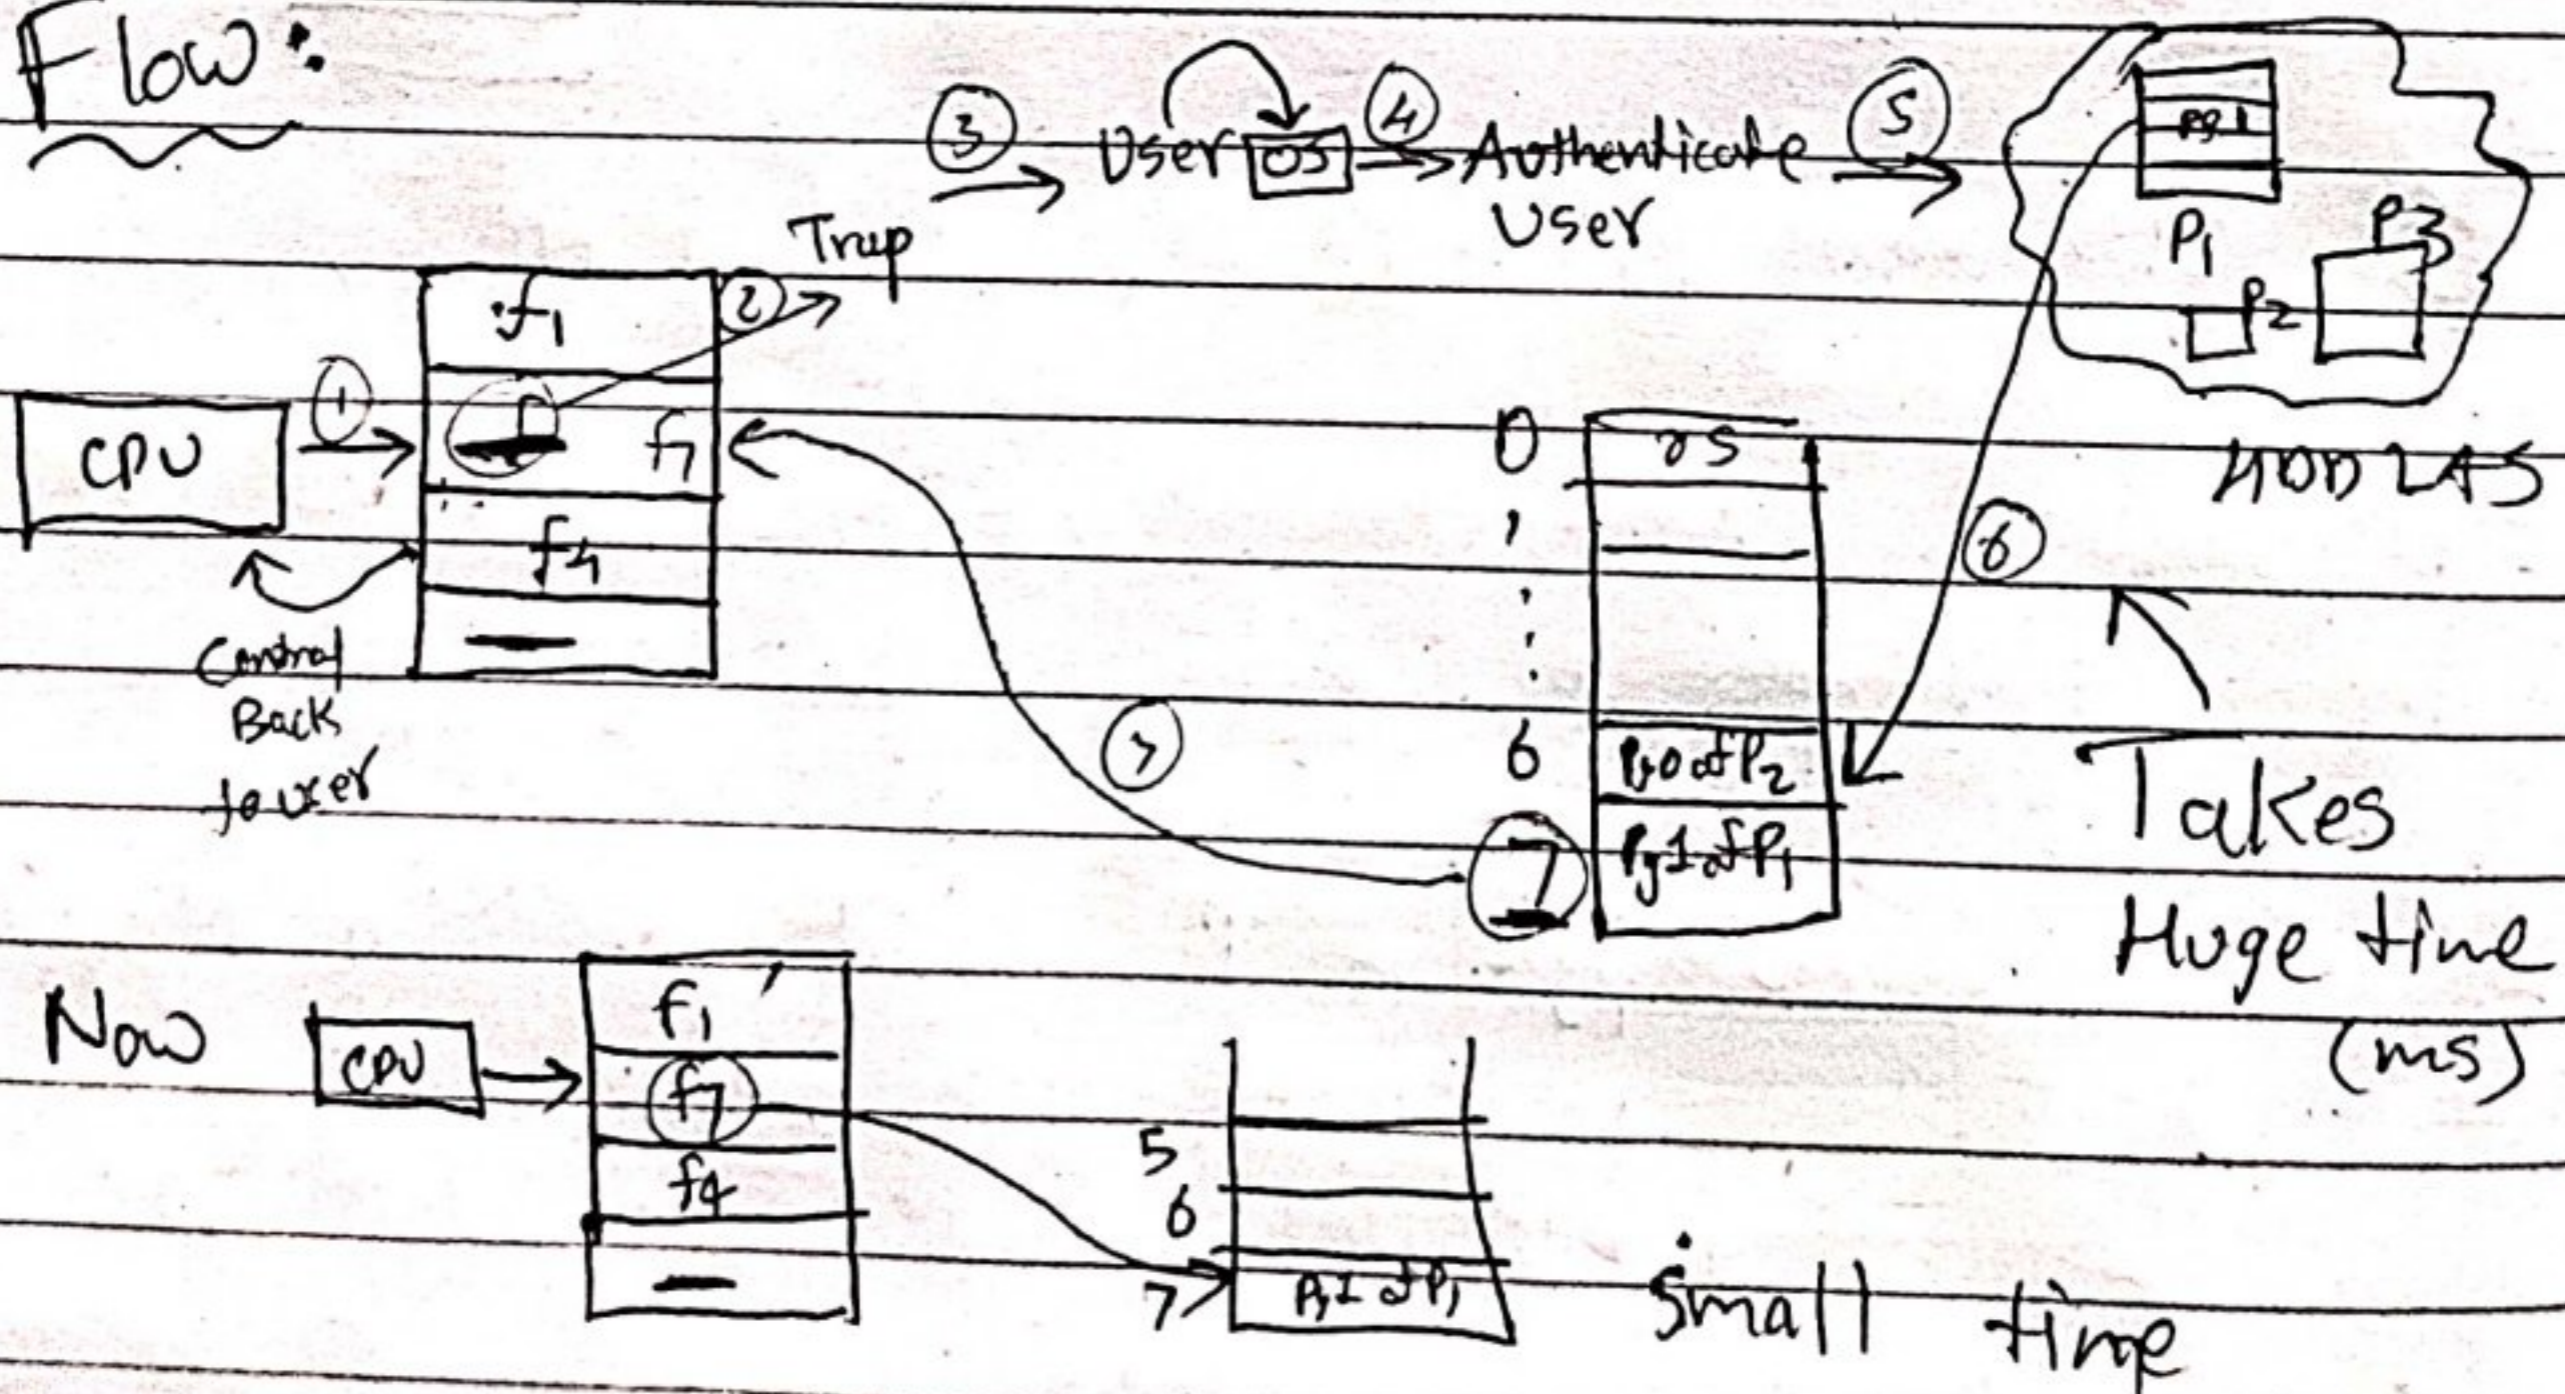 Flow:
③ User OS ④ Authenticate ⑤
User
pg 1
P1
P2
P3
HDD LAS
Trap
②
f1
CPU ①
f7
f4
Control
Back
to user
⑦
⑥
0 OS
6 Pg 0 of P2
7 Pg 1 of P1
Takes
Huge time
(ms)
Now CPU
f1
f7
f4
5
6
7 Pg 1 of P1
small time